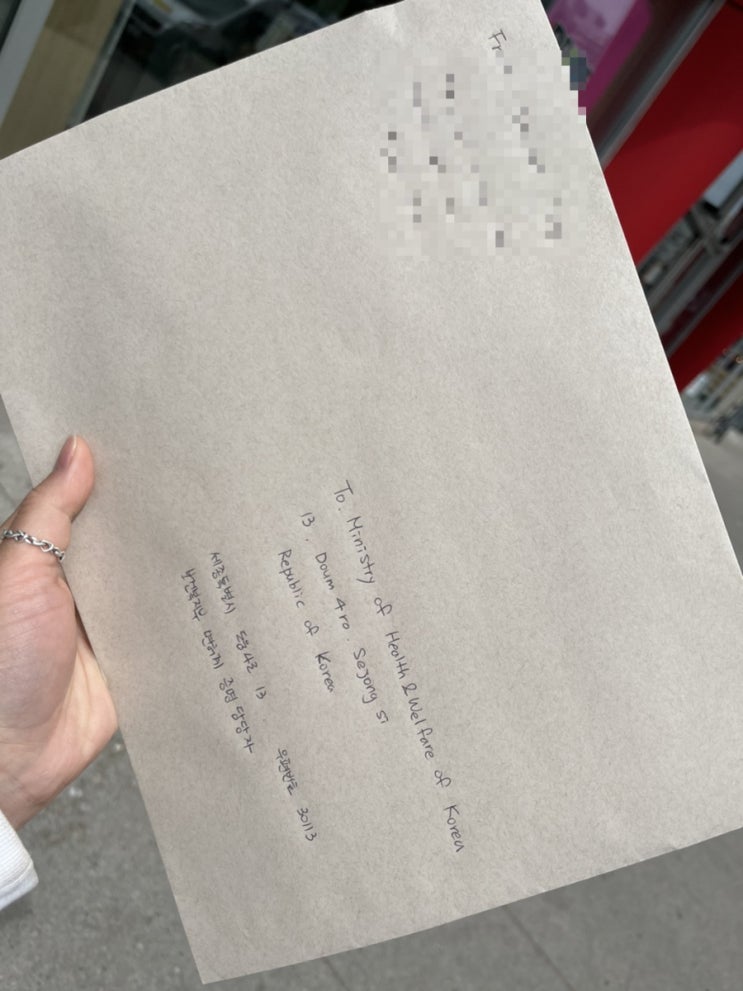 Fr
To. Ministry of Health & Welfare of Korea
13. Doum 4 ro. Sejong si
Republic of Korea
세종특별시 도움4로 13. 우편번호 30113
보건복지부 면허지 증명 담당자